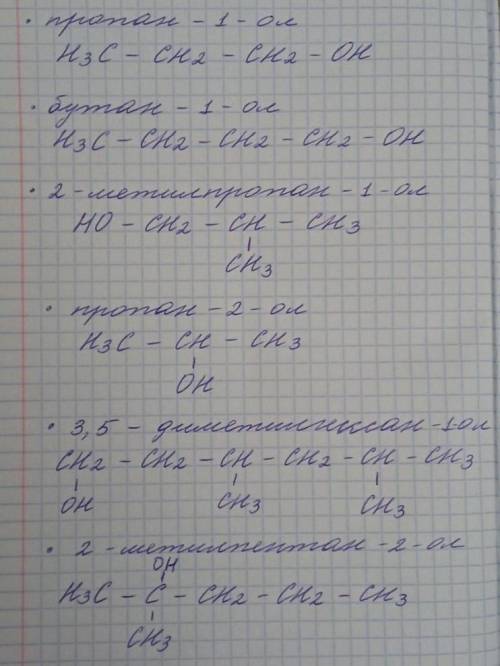 · пропан - 1 - ол
H3C - CH2 - CH2 - OH
· бутан - 1 - ол
H3C - CH2 - CH2 - CH2 - OH
· 2 - метилпропан - 1 - ол
HO - CH2 - CH - CH3
CH3
· пропан - 2 - ол
H3C - CH - CH3
OH
· 3,5 - диметилгексан - 1 ол
CH2 - CH2 - CH - CH2 - CH - CH3
OH CH3 CH3
· 2 - метилпентан - 2 - ол
OH
H3C - C - CH2 - CH2 - CH3
CH3